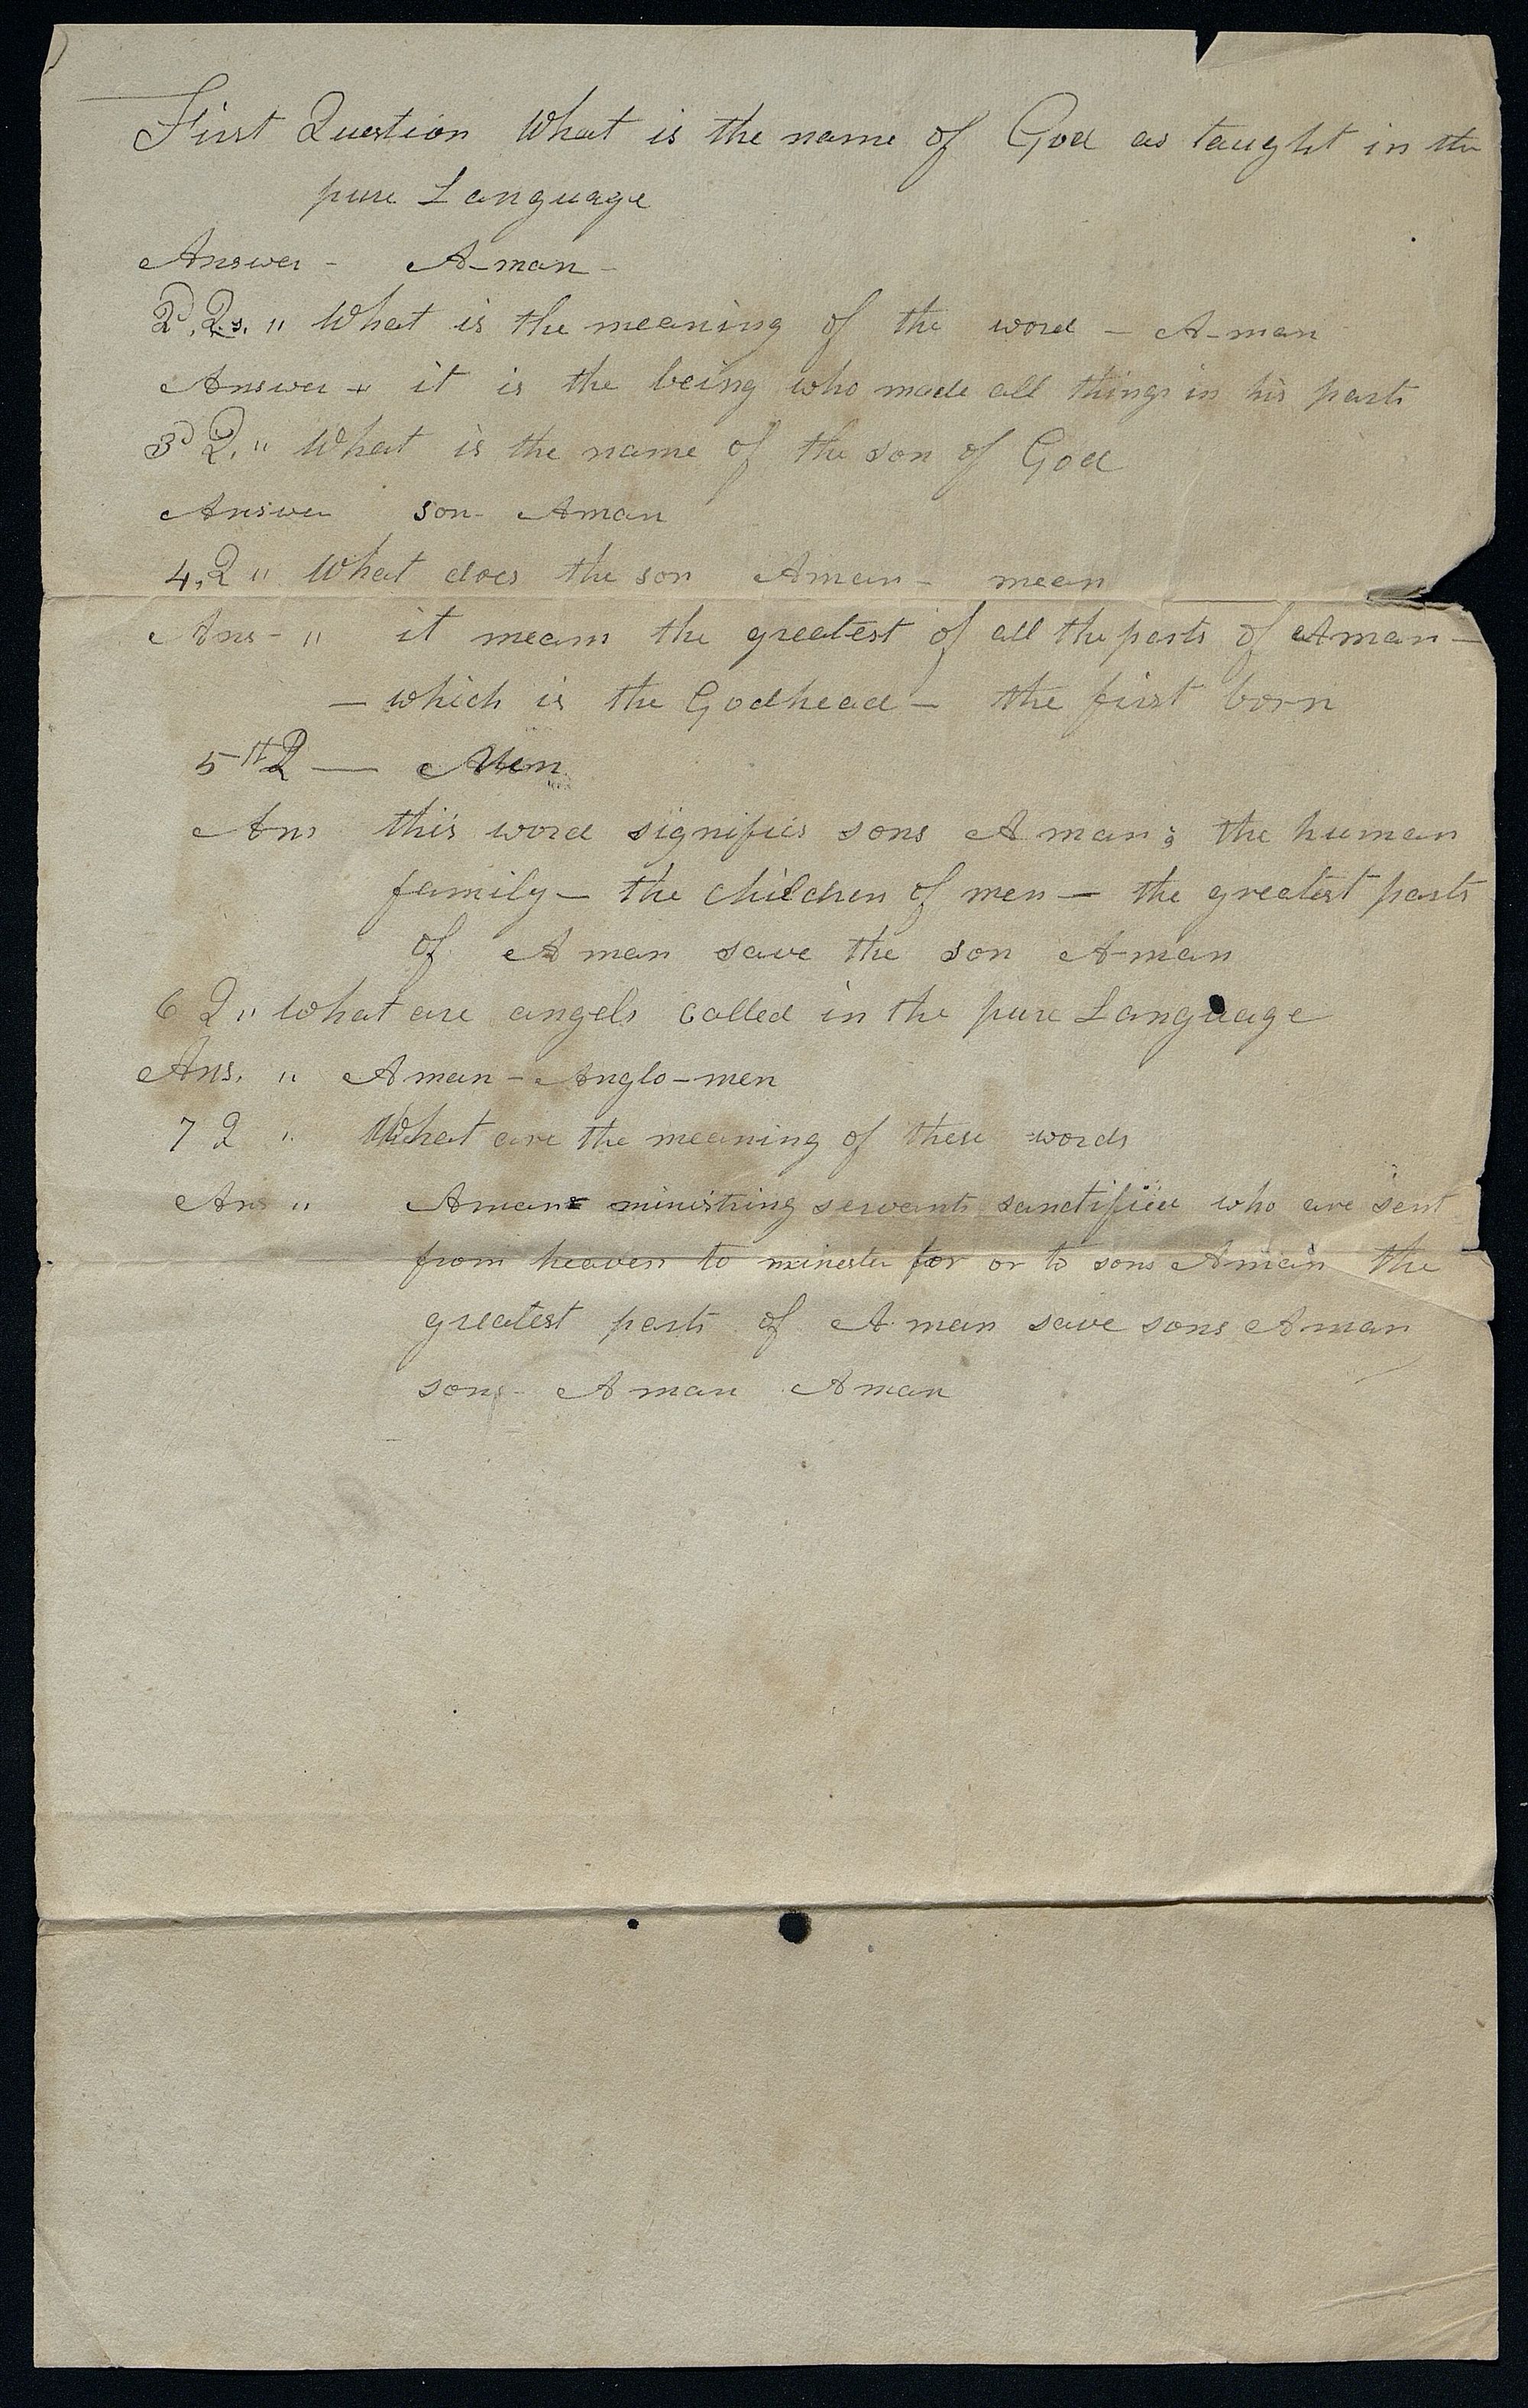 First Question What is the name of God as taught in the
pure Language
Answer - A-man -
2d. Qs. " What is the meaning of the word - A-man
Answer - it is the being who made all things in his parts
3d Q. " What is the name of the son of God
Answer son- Aman
4,Q " What does the son Aman - mean
Ans- " it means the greatest of all the parts of Aman -
- which is the Godhead - the first born
5th Q — Men
Ans this word signifies sons Aman; the human
family - the children of men - the greatest parts
of A man save the son A-man
6 Q " What are angels called in the pure Language
Ans. " Aman - Anglo-men
7 Q " What are the meaning of these words
Ans " Amans ministring servants sanctified who are sent
from heaven to minester for or to sons Aman the
greatest parts of A man save sons Aman
sons- A man Aman